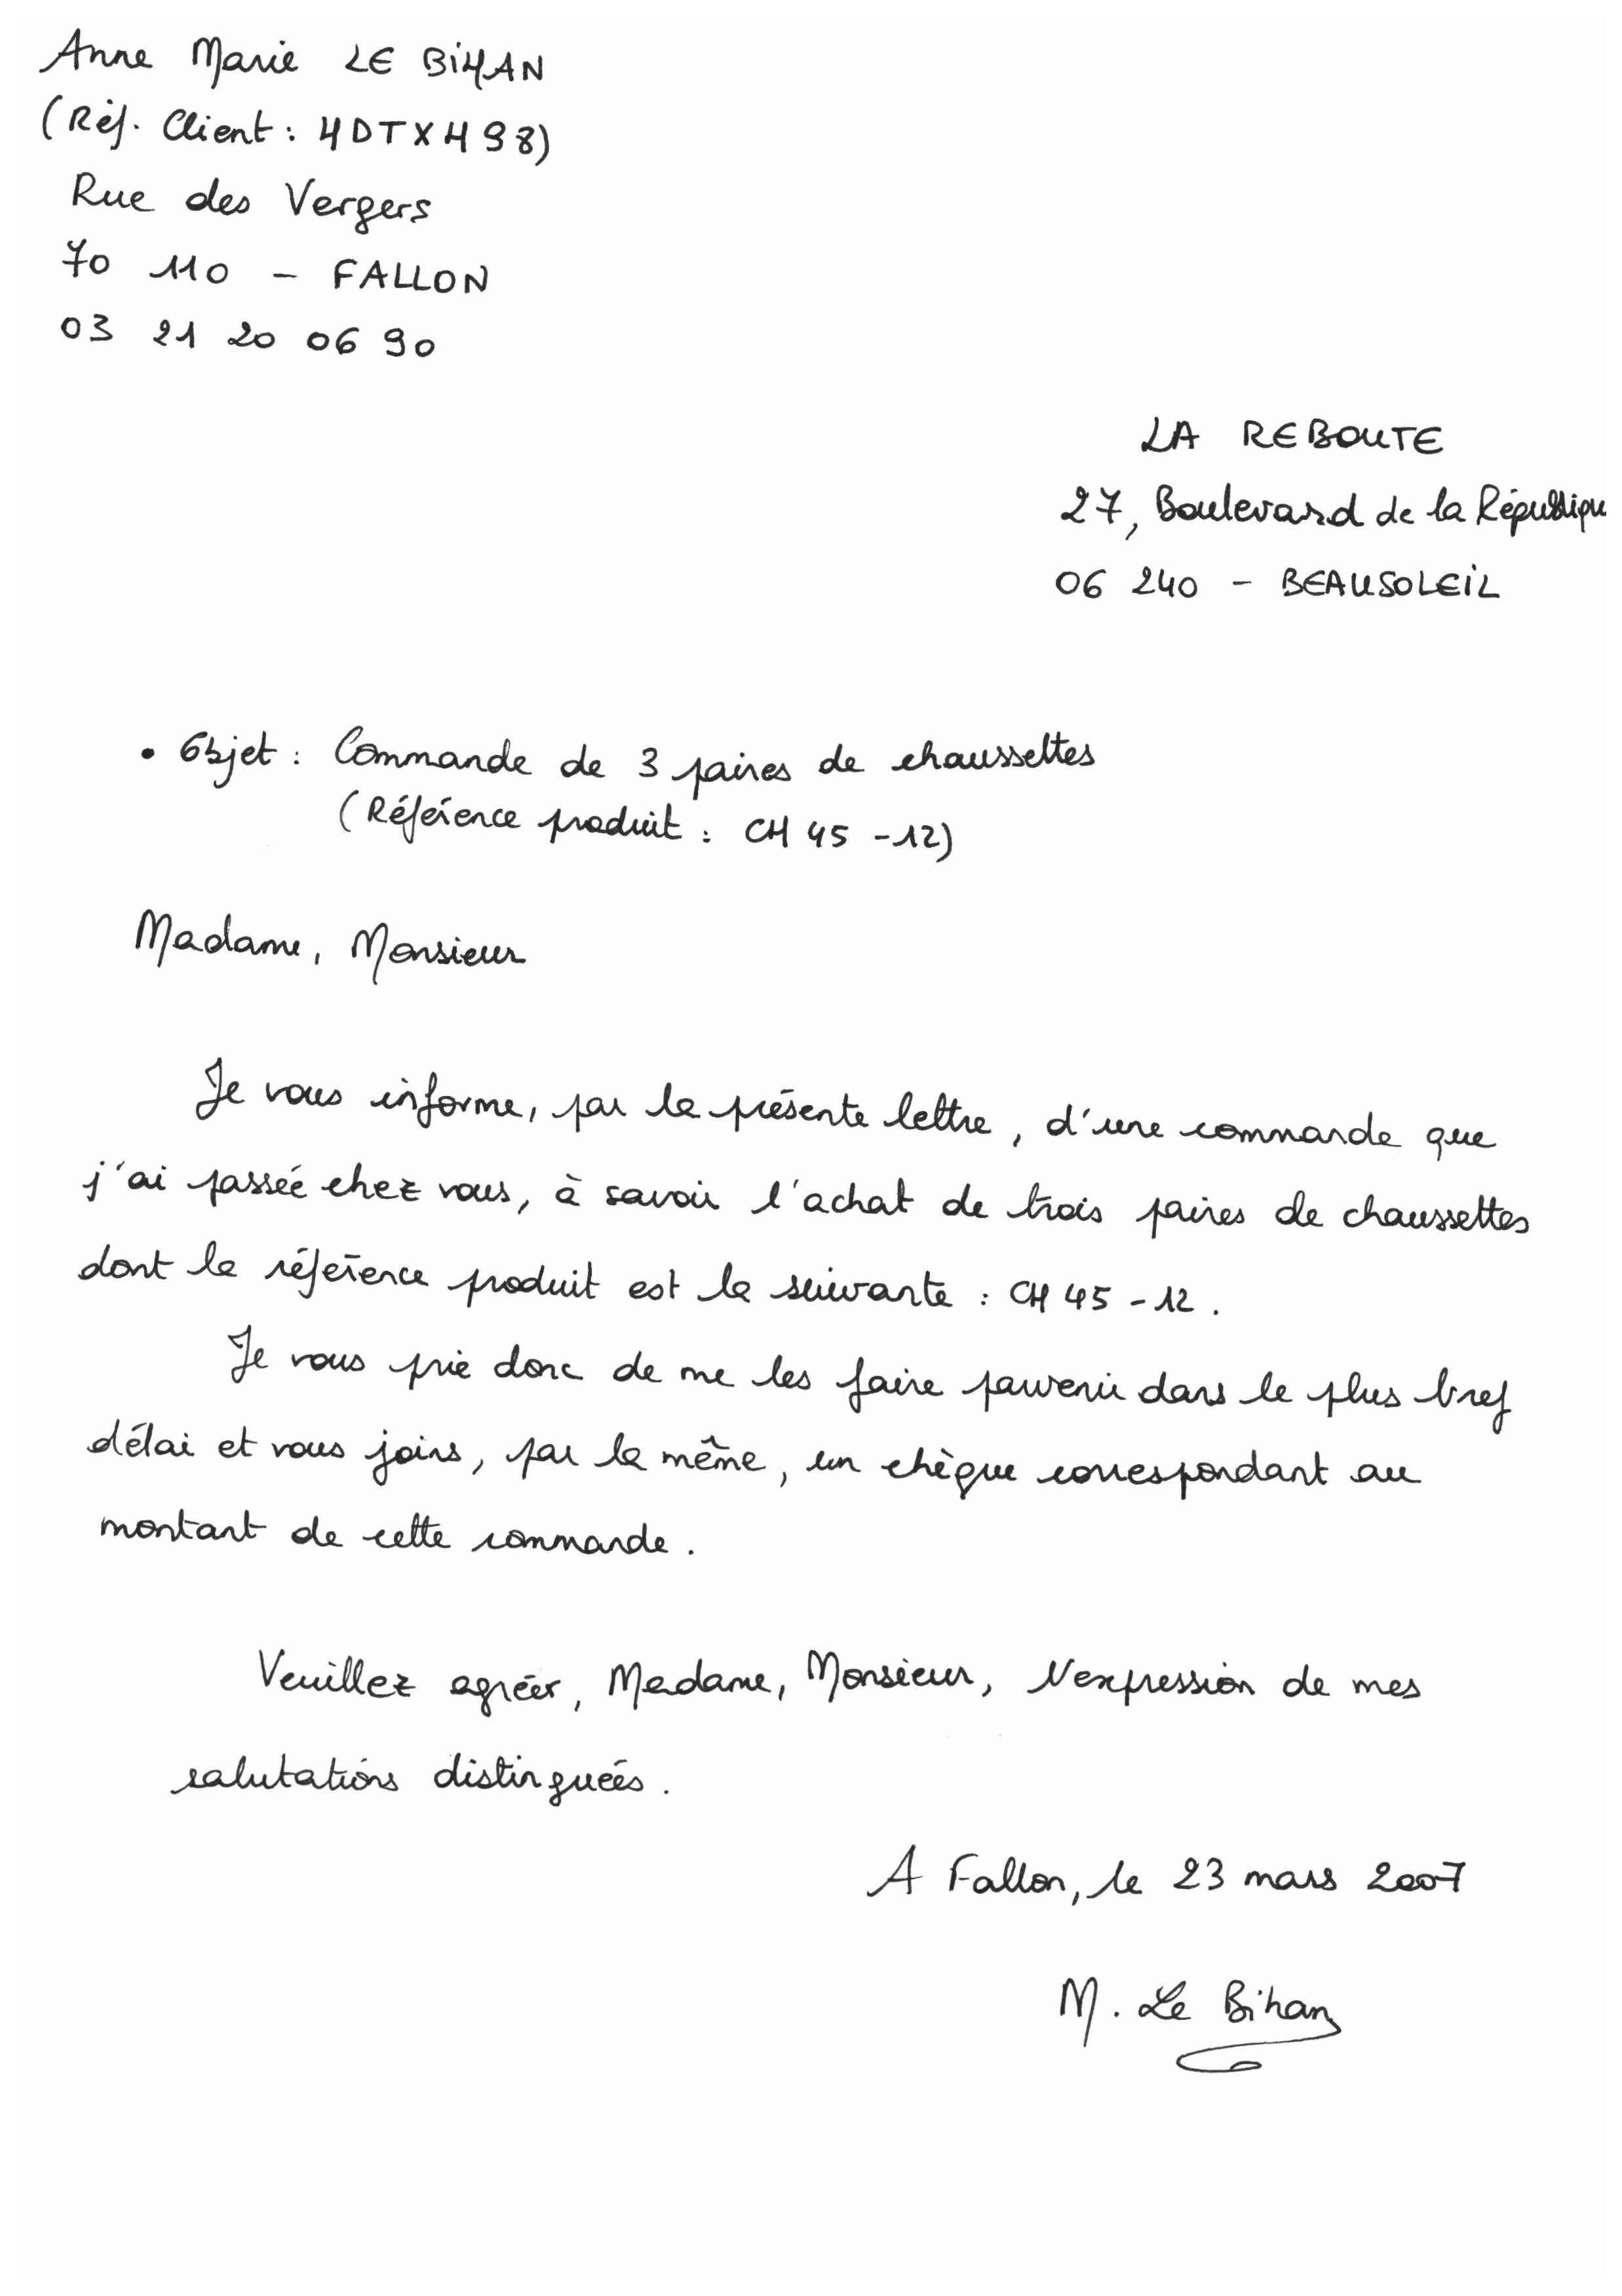 Anne Marie LE BIHAN
(Réf. Client : HDTXH98)
Rue des Vergers
70 110 - FALLON
03 21 20 06 90
LA REBOUTE
27, Boulevard de la Républiqu
06 240 - BEAUSOLEIL
• Objet : Commande de 3 paires de chaussettes
(Référence produit : CH 45 -12)
Madame, Monsieur
Je vous informe, par la présente lettre, d'une commande que
j'ai passée chez vous, à savoir l'achat de trois paires de chaussettes
dont la référence produit est la suivante : CH 45 -12.
Je vous prie donc de me les faire parvenir dans le plus bref
délai et vous joins, par la même, un chèque correspondant au
montant de cette commande.
Veuillez agréer, Madame, Monsieur, l'expression de mes
salutations distinguées.
A Fallon, le 23 mars 2007
M. Le Bihan